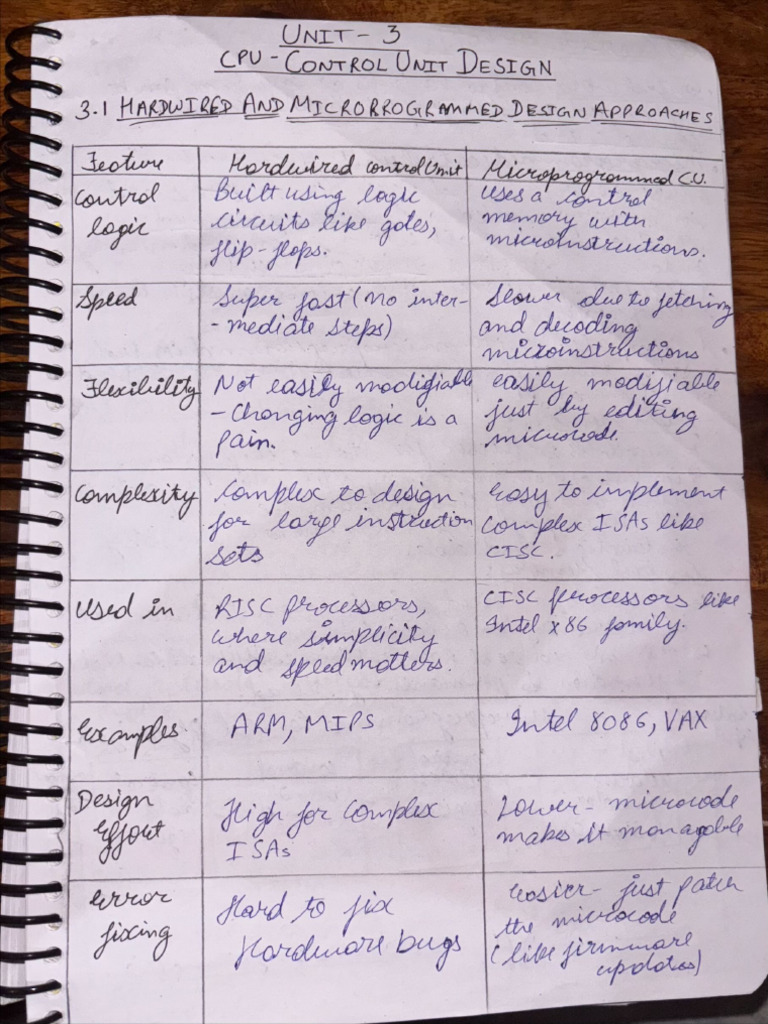 UNIT - 3
CPU - CONTROL UNIT DESIGN
3.1 HARDWIRED AND MICRORROGRAMMED DESIGN APPROACHES
Feature
Hardwired control Unit
Microprogrammed C.U.
Control
logic
Built using logic
circuits like gates,
flip-flops.
Uses a control
memory with
microinstructions.
Speed
Super fast (No inter-
-mediate steps)
Slower due to fetching
and decoding
microinstructions
Flexibility
Not easily modifiable
- Changing logic is a
pain.
easily modifiable
just by editing
microcode.
Complexity
Complex to design
for large instruction
sets
Easy to implement
complex ISAs like
CISC.
Used in
RISC processors,
where simplicity
and speed matters.
CISC processors like
Intel x86 family.
Examples
ARM, MIPS
Intel 8086, VAX
Design
Effort
High for complex
ISAs
Lower - microcode
makes it managable
Error
fixing
Hard to fix
Hardware bugs
Easier - just patch
the microcode
(like firmware
updates)